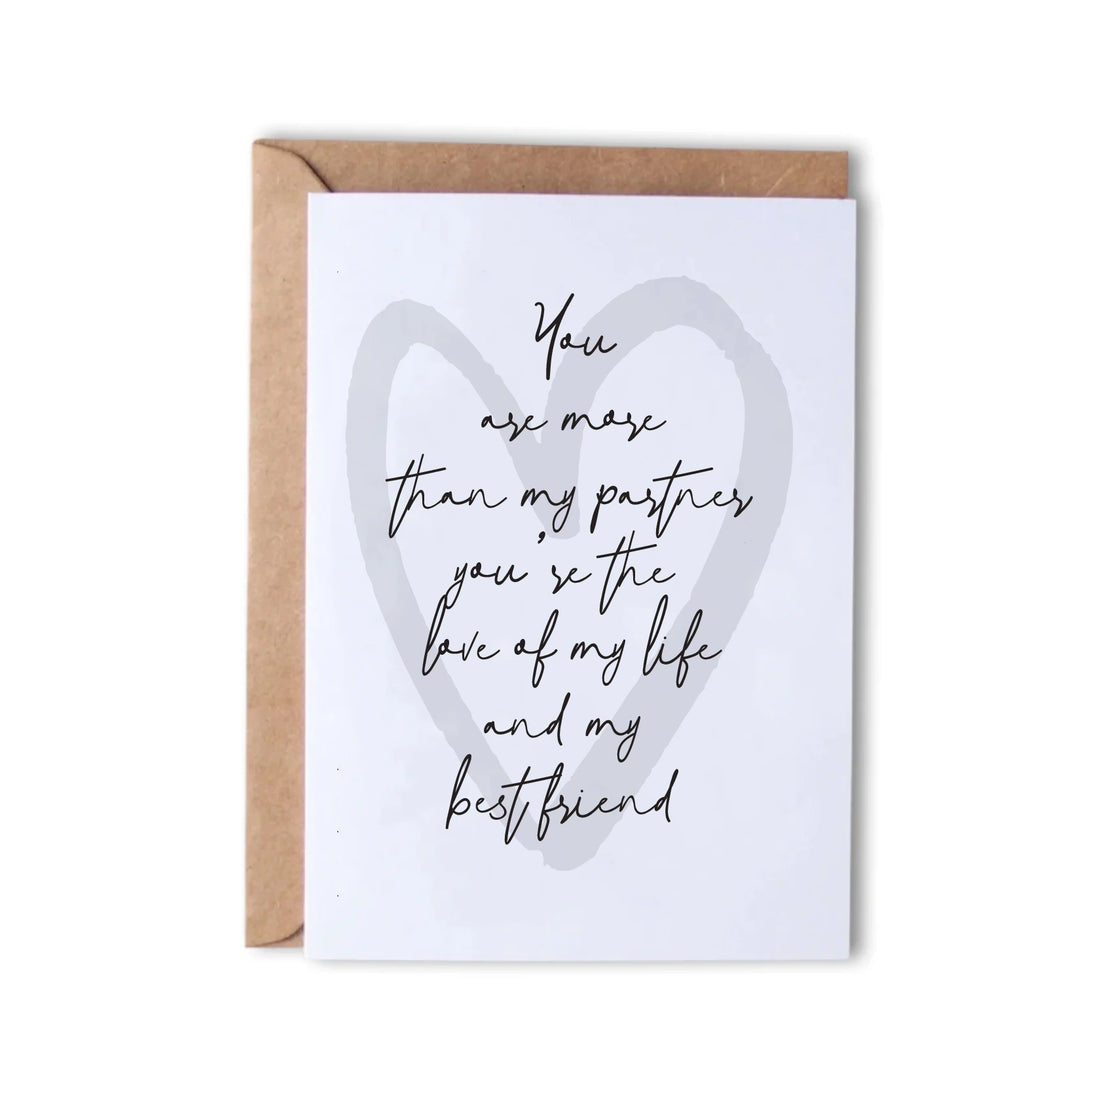 You
are more
than my partner
you're the
love of my life
and my
best friend